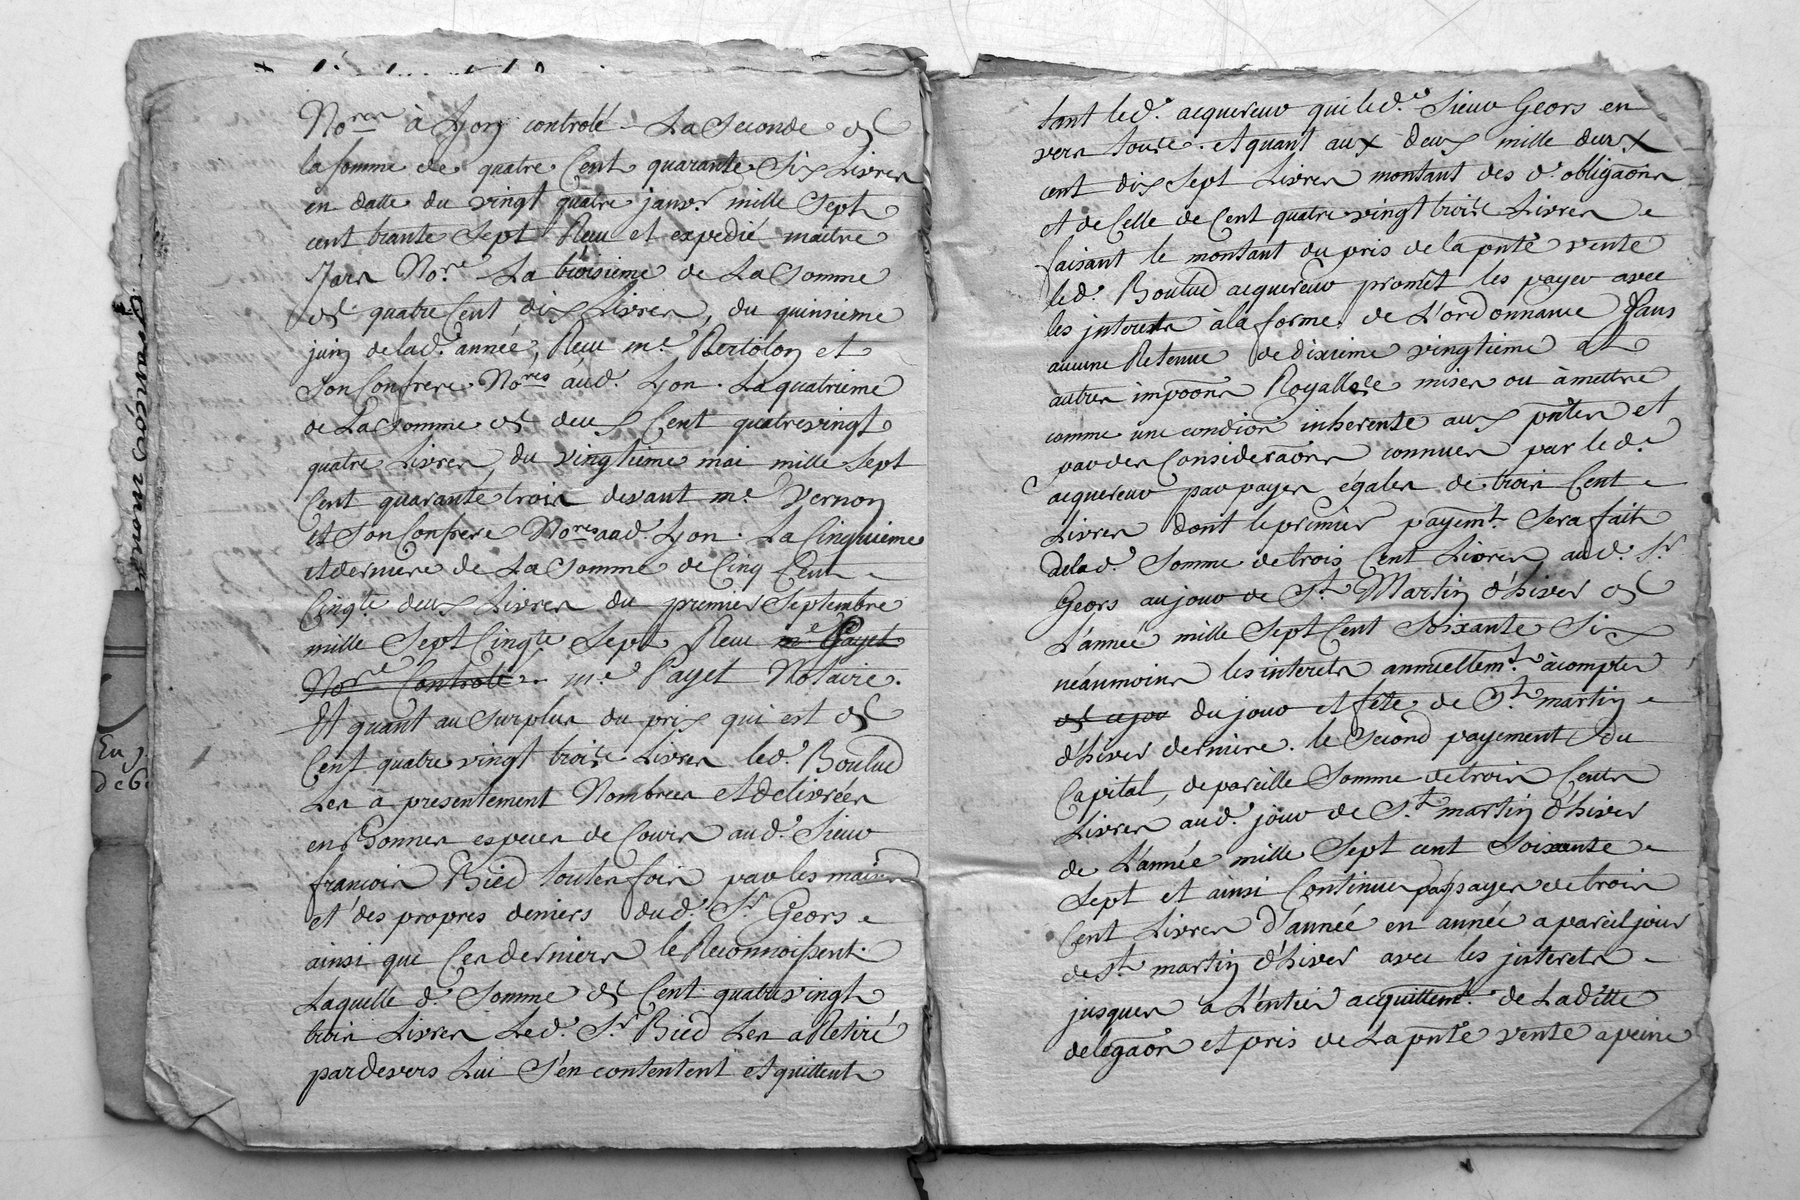 No.res à Lyon controlé La Seconde de
la somme de quatre Cent quarante Six Livres
en datte du vingt quatre janv.r mille Sept
cent trente Sept Recu et expedié maitre
No.re La troisieme de La Somme
de quatre Cent dix Livres, du quinsieme
juin de lad.e année, Recu m.e Bertolon et
Son Confrere No.res aud. Lyon. La quatrieme
de La Somme de deux Cent quatrevingt
quatre Livres, du vingtieme mai mille Sept
Cent quarante trois devant m.e Vernon
et Son Confrere No.res aud. Lyon. La Cinquieme
et derniere de La Somme de Cinq Cent
Cinqte deux Livres du premier Septembre
mille Sept Cinqte Sept Recu m.e Payet
No.re Controlé m.e Payet Notaire.
Et quant au Surplus du prix qui est de
Cent quatre vingt trois Livres led. Boulud
Les a presentement Nombrees et delivrées
en Bonnes especes de Cours aud. Sieur
francois Bied toutes fois par les mains
et des propres deniers dud. S.r Geors
ainsi que Ces derniers le Reconnoissent
Laquelle d. Somme de Cent quatrevingt
trois Livres Led. S.r Bied Les a Retiré
pardevers Lui S'en contentent et quittent
francois
En
tant led. acquereur que led. Sieur Geors en
vers tous. et quant aux deux mille deux
cent dix Sept Livres montant des d. obligaons
et de Celle de Cent quatre vingt trois Livres
faisant le montant du pris de la pnte vente
led. Boulud acquereur promet les payer avec
les jnterets à la forme de L'ordonnance Sans
aucune Retenue de dixieme vingtieme et
autres impoons Royalles mises ou à mettre
comme une condion inherente aux pntes et
par des Consideraons connues par led.
acquereur par payes égales de trois Cent
Livres dont le premier payem.t Sera fait
de lad. Somme de trois Cent Livres aud. S.r
Geors au jour de S.t Martin d'hiver de
L'année mille Sept Cent Soixante Six
néaumoins les interets annuellem.t à compter
du jour et fête de S.t martin
d'hiver derniere. le Second payement du
Capital, de pareille Somme de trois Cents
Livres aud. jour de S.t martin d'hiver
de L'année mille Sept cent Soixante
Sept et ainsi Continuer par payes de trois
Cent Livres d'année en année a pareil jour
de S.t martin d'hiver avec les jnterets
jusques a L'entier acquittem.t de La ditte
delegaon et pris de La pnte vente a peine